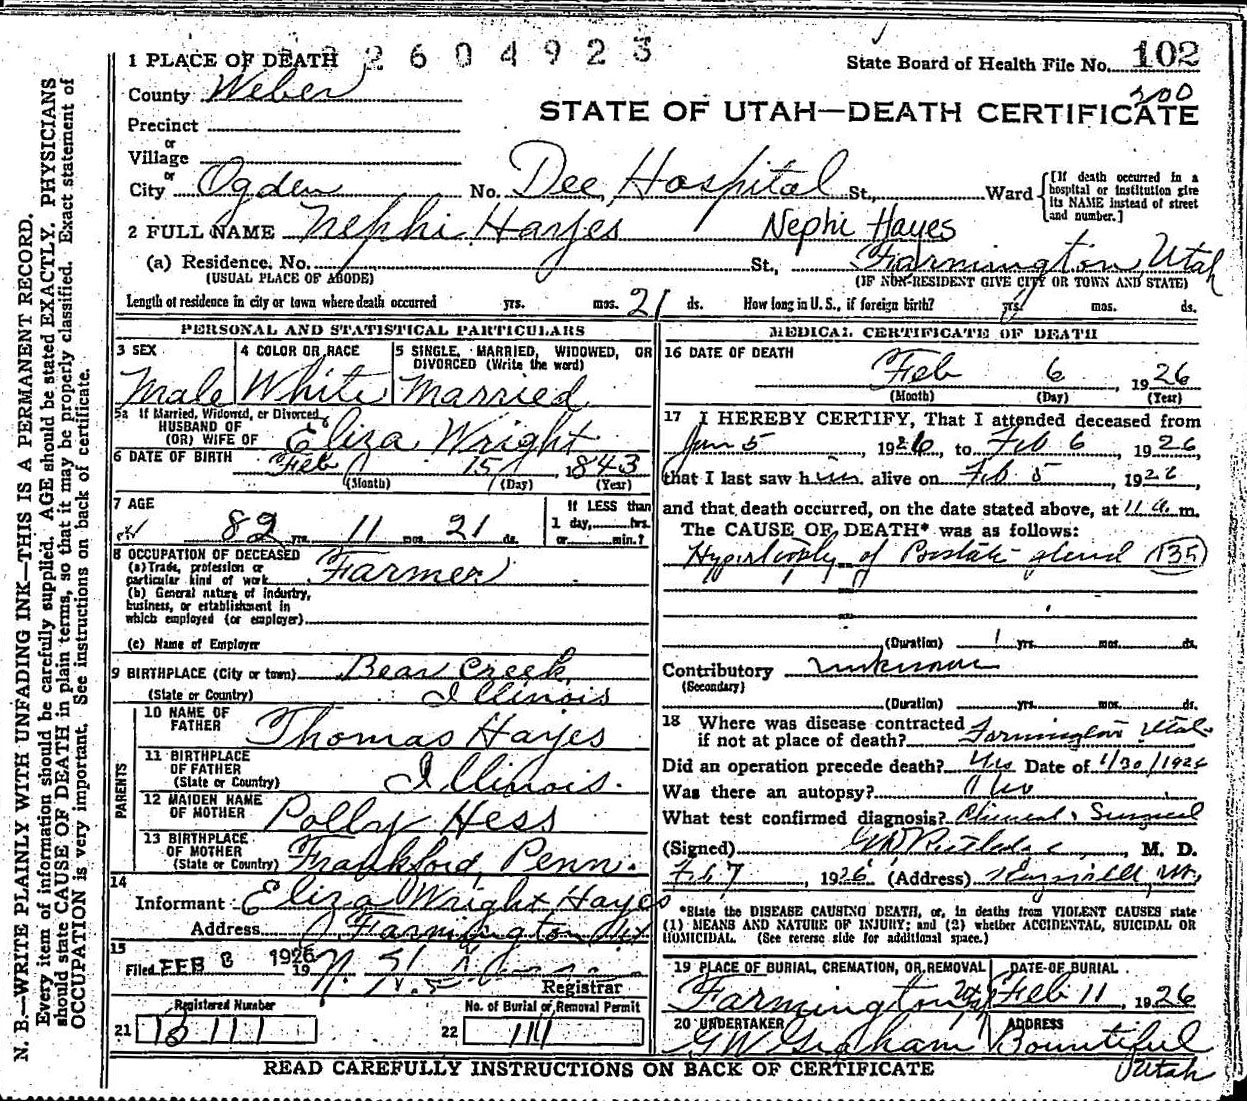 N. B.—WRITE PLAINLY WITH UNFADING INK—THIS IS A PERMANENT RECORD.
Every item of information should be carefully supplied. AGE should be stated EXACTLY. PHYSICIANS
should state CAUSE OF DEATH in plain terms, so that it may be properly classified. Exact statement of
OCCUPATION is very important. See instructions on back of certificate.
2604923
1 PLACE OF DEATH
State Board of Health File No. 102
200
County Weber
STATE OF UTAH—DEATH CERTIFICATE
Precinct
or
Village
or
City Ogden No. Dee Hospital St., Ward
[If death occurred in a
hospital or institution give
its NAME instead of street
and number.]
2 FULL NAME Nephi Hayes Nephi Hayes
(a) Residence. No. St., Farmington, Utah
(USUAL PLACE OF ABODE) (IF NON-RESIDENT GIVE CITY OR TOWN AND STATE)
Length of residence in city or town where death occurred yrs. mos. 21 ds. How long in U. S., if foreign birth? yrs. mos. ds.
PERSONAL AND STATISTICAL PARTICULARS
3 SEX 4 COLOR OR RACE 5 SINGLE, MARRIED, WIDOWED, OR
DIVORCED (Write the word)
Male White Married
5a If Married, Widowed, or Divorced
HUSBAND OF
(OR) WIFE OF Eliza Wright
6 DATE OF BIRTH Feb 15 1843
(Month) (Day) (Year)
7 AGE If LESS than
82 yrs. 11 mos. 21 ds. 1 day, hrs.
or min.?
8 OCCUPATION OF DECEASED
(a) Trade, profession or
particular kind of work Farmer
(b) General nature of industry,
business, or establishment in
which employed (or employer)
(c) Name of Employer
9 BIRTHPLACE (City or town) Bear Creek
(State or Country) Illinois
PARENTS
10 NAME OF
FATHER Thomas Hayes
11 BIRTHPLACE
OF FATHER
(State or Country) Illinois.
12 MAIDEN NAME
OF MOTHER Polly Hess
13 BIRTHPLACE
OF MOTHER
(State or Country) Frankford, Penn.
14
Informant Eliza Wright Hayes
Address Farmington Ut
15
Filed FEB 8 1926
19
Registrar
Registered Number No. of Burial or Removal Permit
21 22 111
MEDICAL CERTIFICATE OF DEATH
16 DATE OF DEATH
Feb 6, 1926
(Month) (Day) (Year)
17 I HEREBY CERTIFY, That I attended deceased from
Jan 5, 1926, to Feb 6, 1926,
that I last saw him alive on Feb 5, 1926,
and that death occurred, on the date stated above, at 11 a. m.
The CAUSE OF DEATH* was as follows:
Hypertrophy of Prostate gland 135
(Duration) 1 yrs. mos. ds.
Contributory unknown
(Secondary)
(Duration) yrs. mos. ds.
18 Where was disease contracted
if not at place of death? Farmington Utah
Did an operation precede death? Yes Date of 1/30/1926
Was there an autopsy? No
What test confirmed diagnosis? Clinical & Surgical
(Signed) , M. D.
Feb 7, 1926 (Address)
*State the DISEASE CAUSING DEATH, or, in deaths from VIOLENT CAUSES state
(1) MEANS AND NATURE OF INJURY; and (2) whether ACCIDENTAL, SUICIDAL OR
HOMICIDAL. (See reverse side for additional space.)
19 PLACE OF BURIAL, CREMATION, OR REMOVAL DATE OF BURIAL
Farmington Utah Feb 11, 1926
20 UNDERTAKER ADDRESS
G W Graham Bountiful
Utah
READ CAREFULLY INSTRUCTIONS ON BACK OF CERTIFICATE